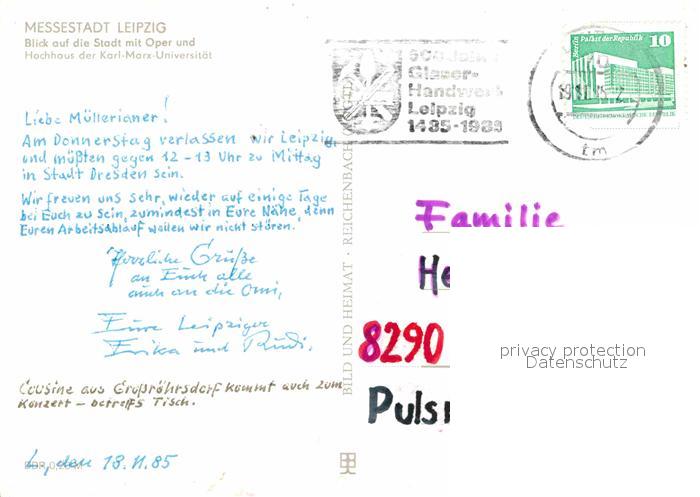 MESSESTADT LEIPZIG
Blick auf die Stadt mit Oper und
Hochhaus der Karl-Marx-Universität
Liebe Müllerianer!
Am Donnerstag verlassen wir Leipzig
und müßten gegen 12 - 13 Uhr zu Mittag
in Stadt Dresden sein.
Wir freuen uns sehr, wieder auf einige Tage
bei Euch zu sein, zumindest in Eure Nähe, denn
Euren Arbeitsablauf wollen wir nicht stören.
Herzliche Grüße
an Euch alle
auch an die Omi,
Eure Leipziger
Erika und Rudi.
Cousine aus Großröhrsdorf kommt auch zum
Konzert - betreffs Tisch.
den 18.11.85
BILD UND HEIMAT · REICHENBACH
500 Jahre
Glaser-
Handwerk
Leipzig
1485-1985
Berlin Palast der Republik
10
DEUTSCHE DEMOKRATISCHE REPUBLIK
tm
Familie
He
8290
Puls
privacy protection
Datenschutz